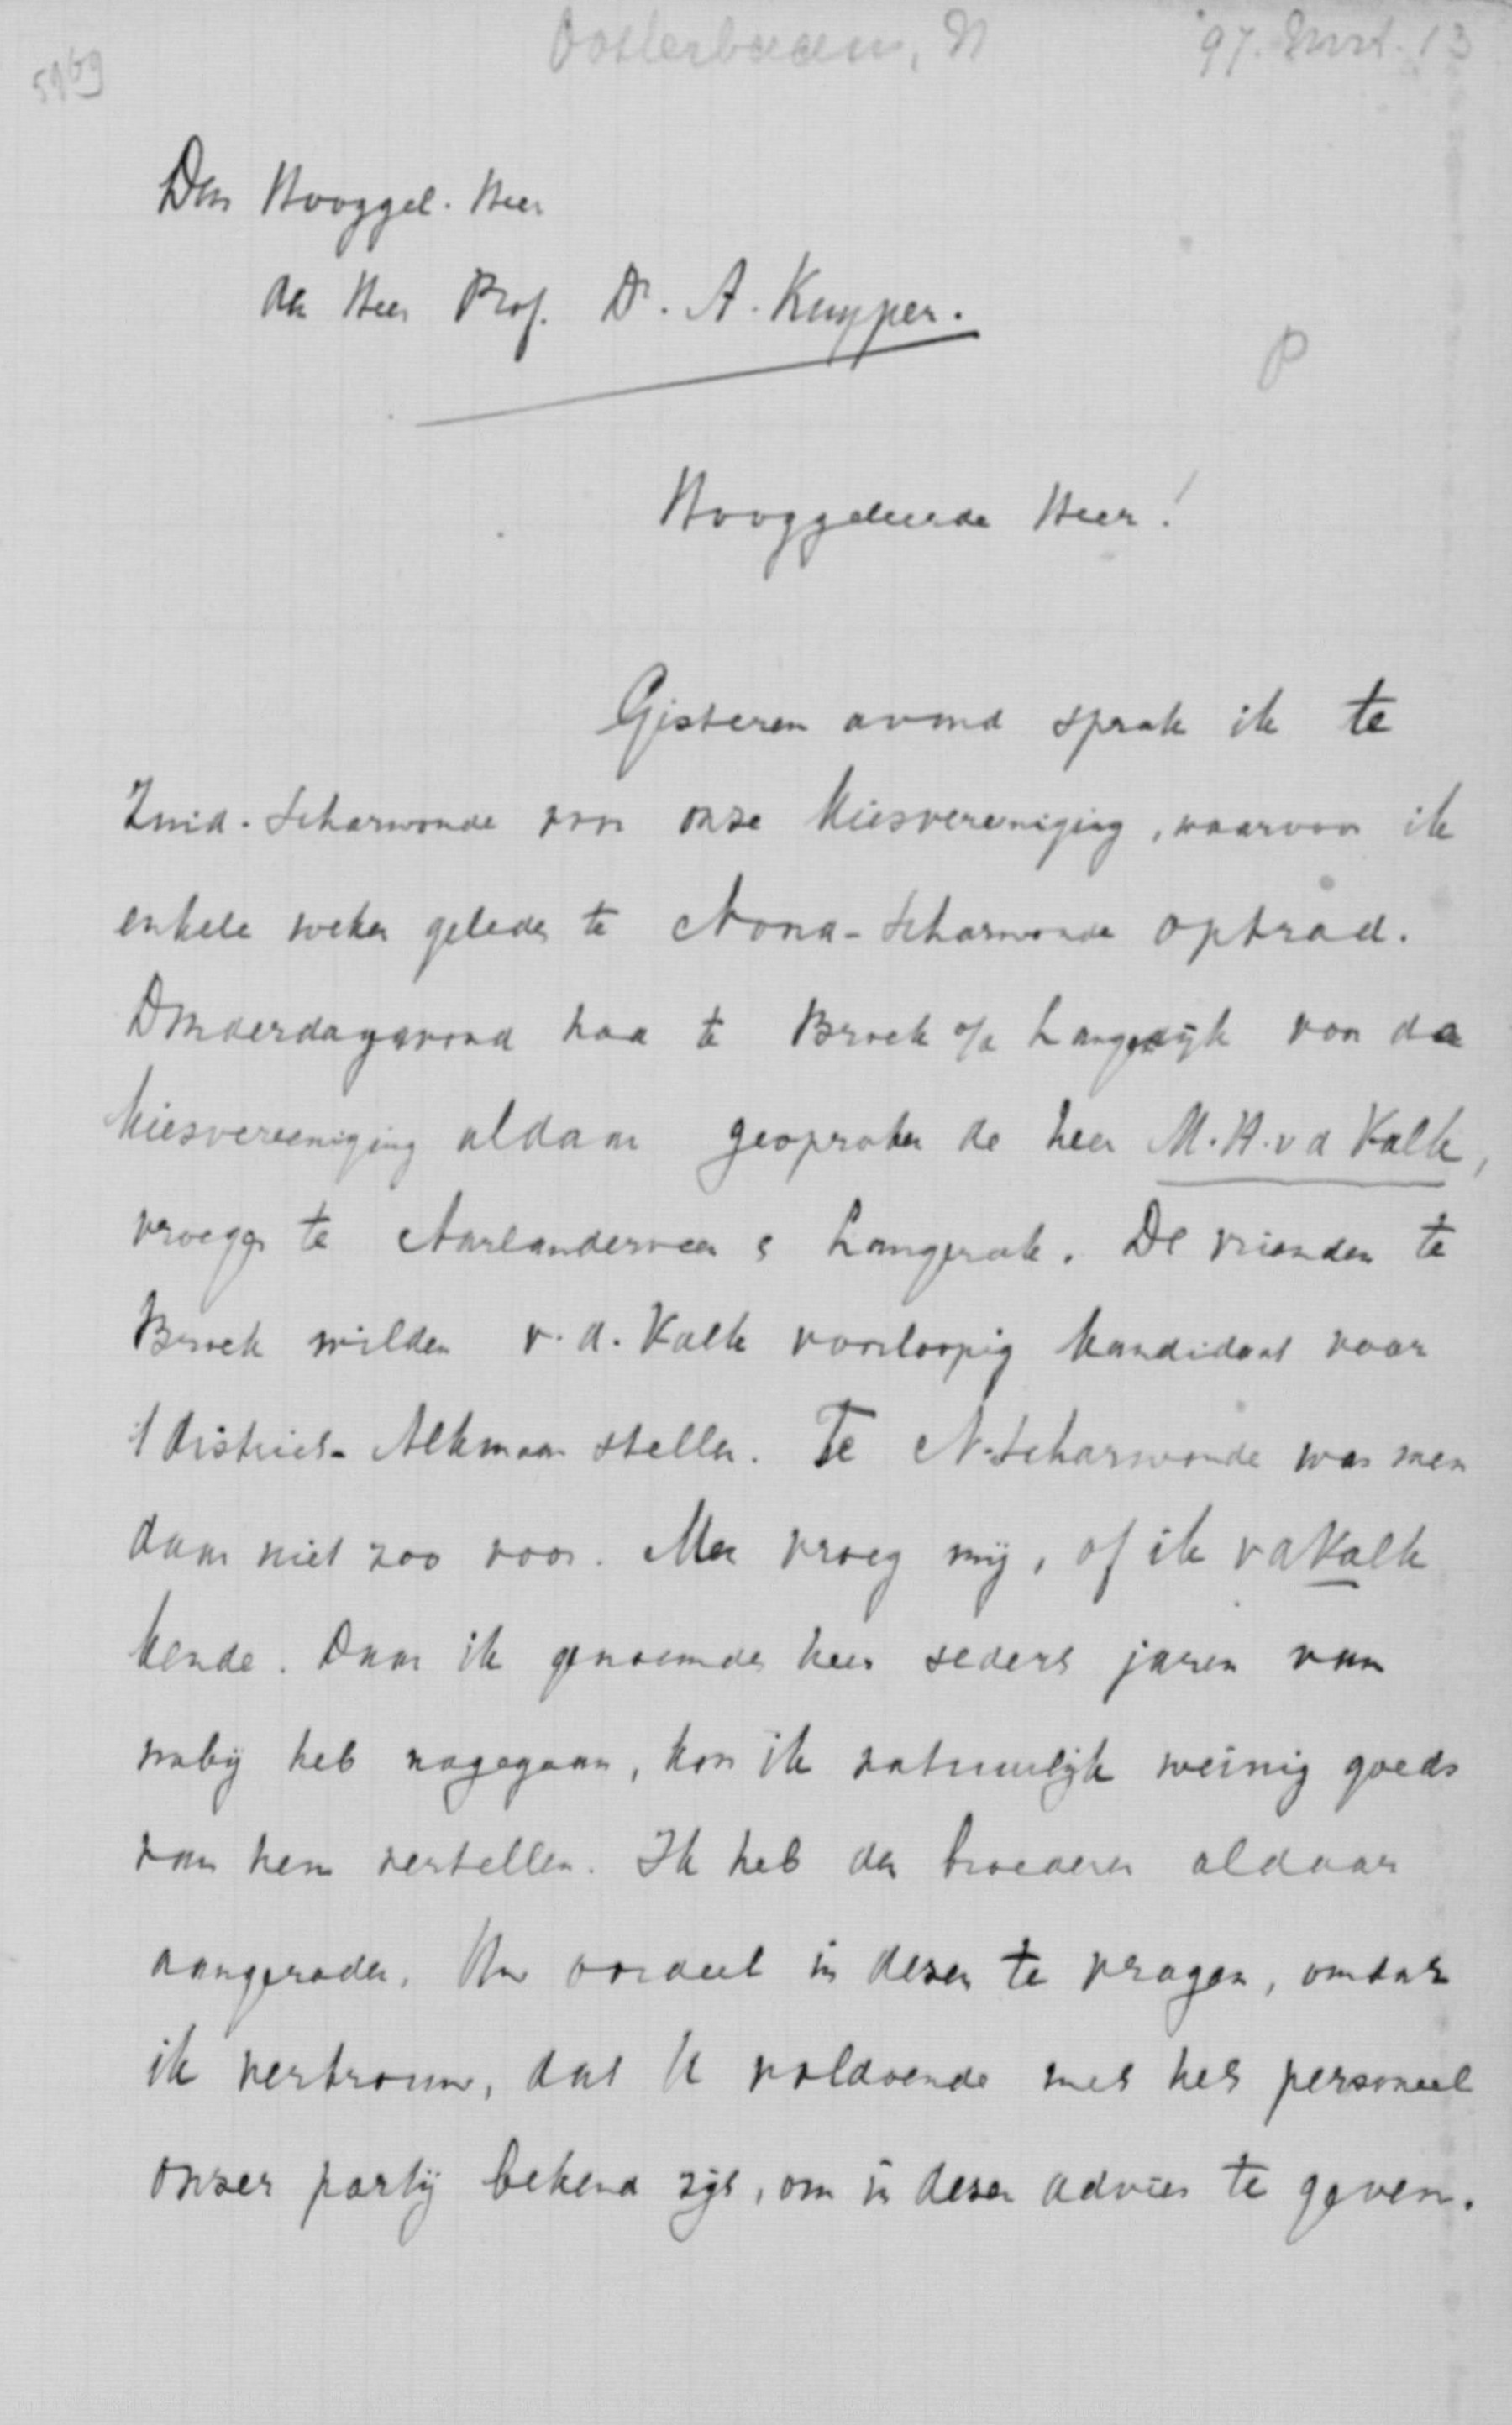 Oosterbaan, N '97. Mrt. 13
5969
Den Hooggel. Heer
den Heer Prof. Dr. A. Kuyper.
P
Hooggeleerde Heer!
Gisteren avond sprak ik te
Zuid-Scharwoude voor onze Kiesvereeniging, waarvoor ik
enkele weken geleden te Noord-Scharwoude optrad.
Donderdagavond had te Broek o/a Langedijk voor de
Kiesvereeniging aldaar gesproken de heer M. H. v d Valk,
vroeger te Aarlanderveen & Langerak. De vrienden te
Broek wilden v. d. Valk voorloopig kandidaat voor
't district-Alkmaar stellen. Te N-Scharwoude was men
daar niet zoo voor. Men vroeg mij, of ik vd Valk
kende. Daar ik genoemden heer sedert jaren van
nabij heb nagegaan, kon ik natuurlijk weinig goeds
van hem vertellen. Ik heb den broederen aldaar
aangeraden, Uw oordeel in dezen te vragen, omdat
ik vertrouw, dat U voldoende met het personeel
onzer partij bekend zijt, om in dezen advies te geven.